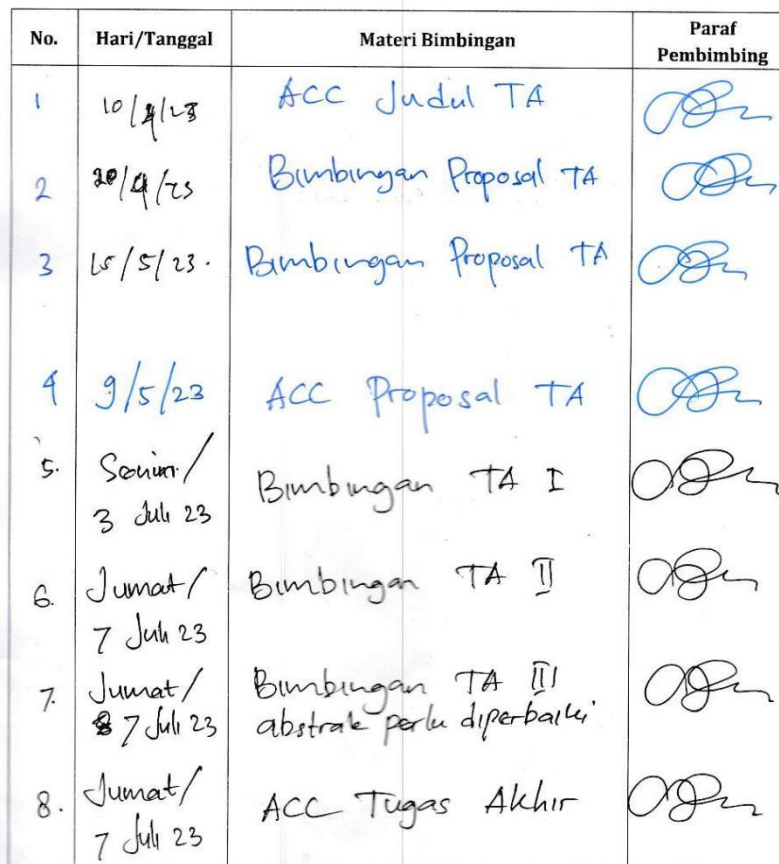 No. Hari/Tanggal Materi Bimbingan Paraf Pembimbing
1 10/4/23 ACC Judul TA
2 20/4/23 Bimbingan Proposal TA
3 15/5/23. Bimbingan Proposal TA
4 9/5/23 ACC Proposal TA
5. Senin/ Bimbingan TA I
3 Juli 23
6. Jumat/ Bimbingan TA II
7 Juli 23
7. Jumat/ Bimbingan TA III
7 Juli 23 abstrak perlu diperbaiki
8. Jumat/ ACC Tugas Akhir
7 Juli 23